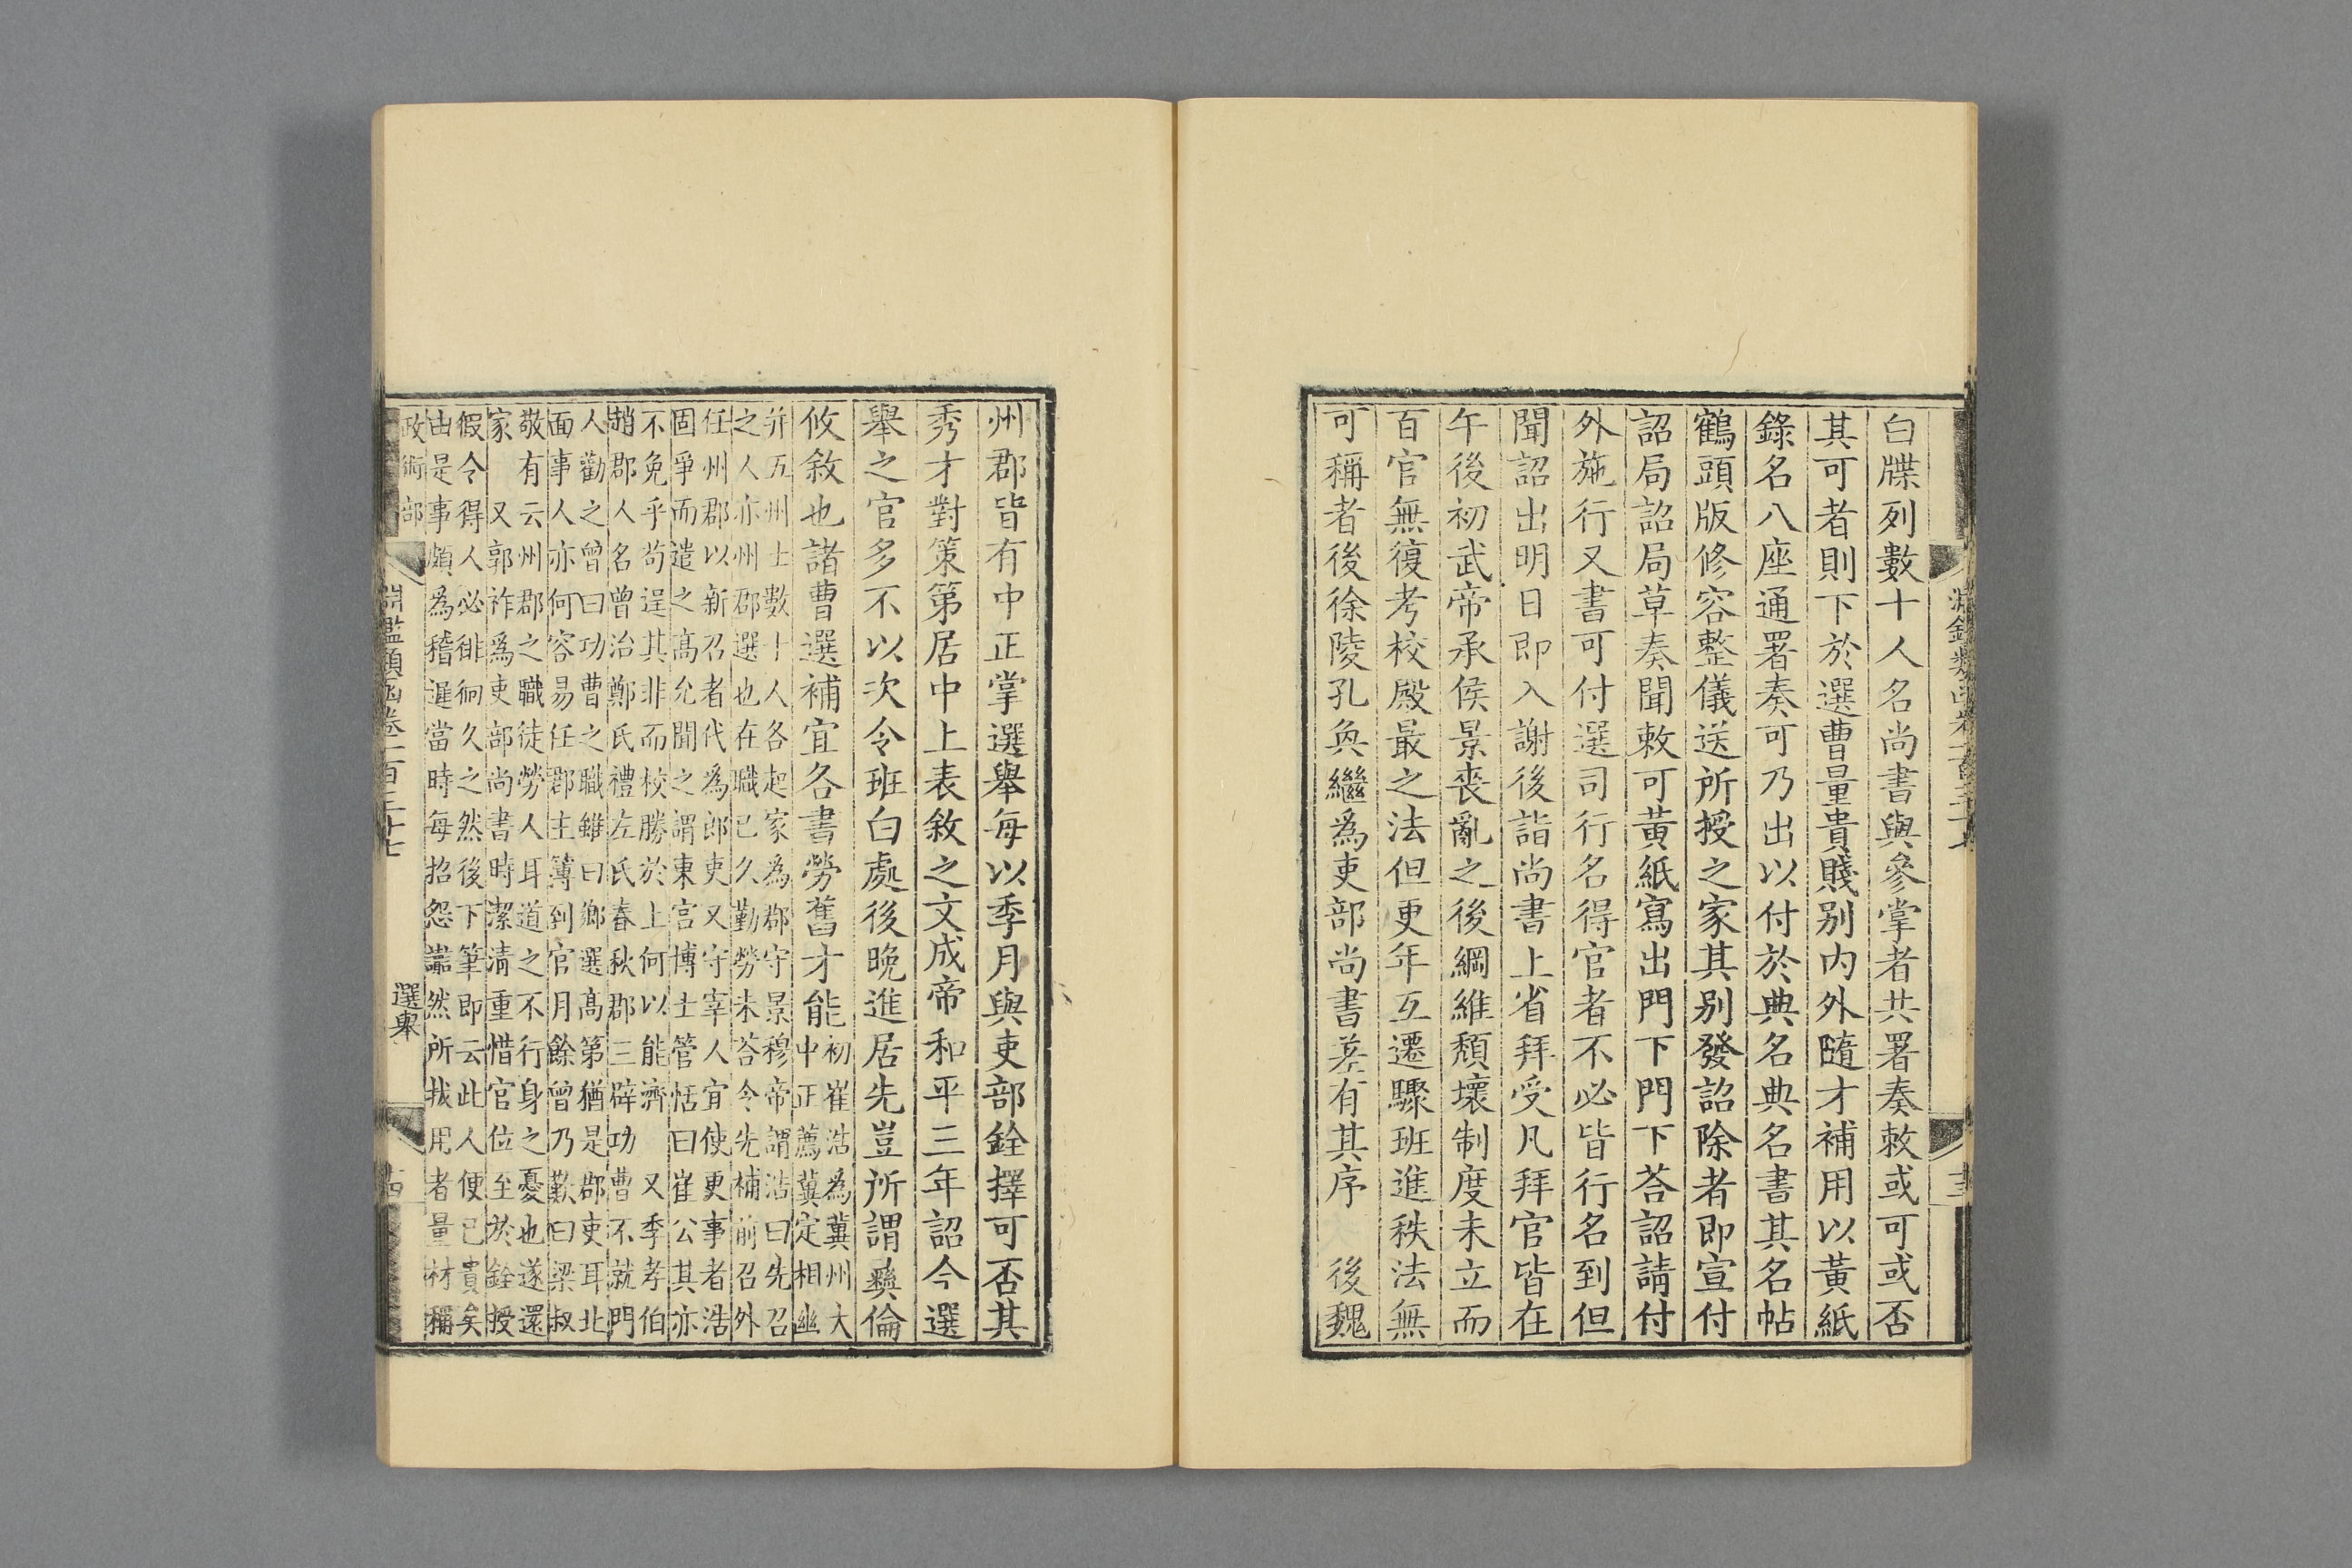 白牒列數十人名尚書與參掌者共署奏敕或可或否
其可者則下於選曹量貴賤别内外隨才補用以黃紙
錄名八座通署奏可乃出以付於典名典名書其名帖
鶴頭版修容整儀送所授之家其别發詔除者即宣付
詔局詔局草奏聞敕可黃紙寫出門下門下荅詔請付
外施行又書可付選司行名得官者不必皆行名到但
聞詔出明日即入謝後詣尚書上省拜受凡拜官皆在
午後初武帝承侯景喪亂之後綱維頹壞制度未立而
百官無復考校殿最之法但更年互遷驟班進秩法無
可稱者後徐陵孔奐繼為吏部尚書差有其序 後魏
州郡皆有中正掌選舉每以季月與吏部銓擇可否其
秀才對策第居中上表敘之文成帝和平三年詔今選
舉之官多不以次令班白處後晚進居先豈所謂彝倫
攸敘也諸曹選補宜各書勞舊才能
初崔浩為冀州大
中正薦冀定相幽
并五州士數十人各起家為郡守景穆帝謂浩曰先召
之人亦州郡選也在職已久勤勞未荅今先補前召外
任州郡以新召者代為郎吏又守宰人宜使更事者浩
固爭而遣之高允聞之謂東宫博士管恬曰崔公其亦
不免乎苟逞其非而校勝於上何以能濟 又季孝伯
趙郡人名曾治鄭氏禮左氏春秋郡三辟功曹不就門
人勸之曾曰功曹之職雖曰鄉選高第猶是郡吏耳北
面事人亦何容易任郡主簿到官月餘曾乃歎曰梁叔
敬有云州郡之職徒勞人耳道之不行身之憂也遂還
家 又郭祚為吏部尚書時潔清重惜官位至於銓授
假令得人必徘徊久之然後下筆即云此人便已貴矣
由是事頗為稽遲當時每招怨讟然所拔用者量材稱
政術部 淵鑑類函卷一百三十七 選舉 十四